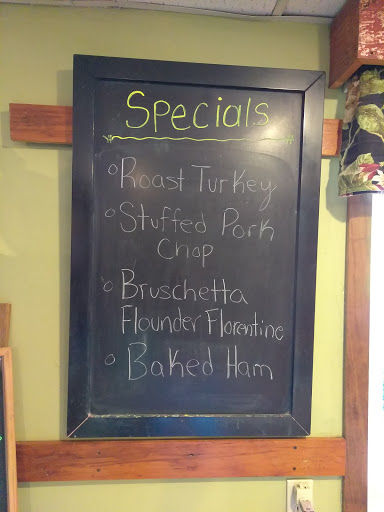 Specials
Roast Turkey
Stuffed Pork
Chop
Bruschetta
Flounder Florentine
Baked Ham